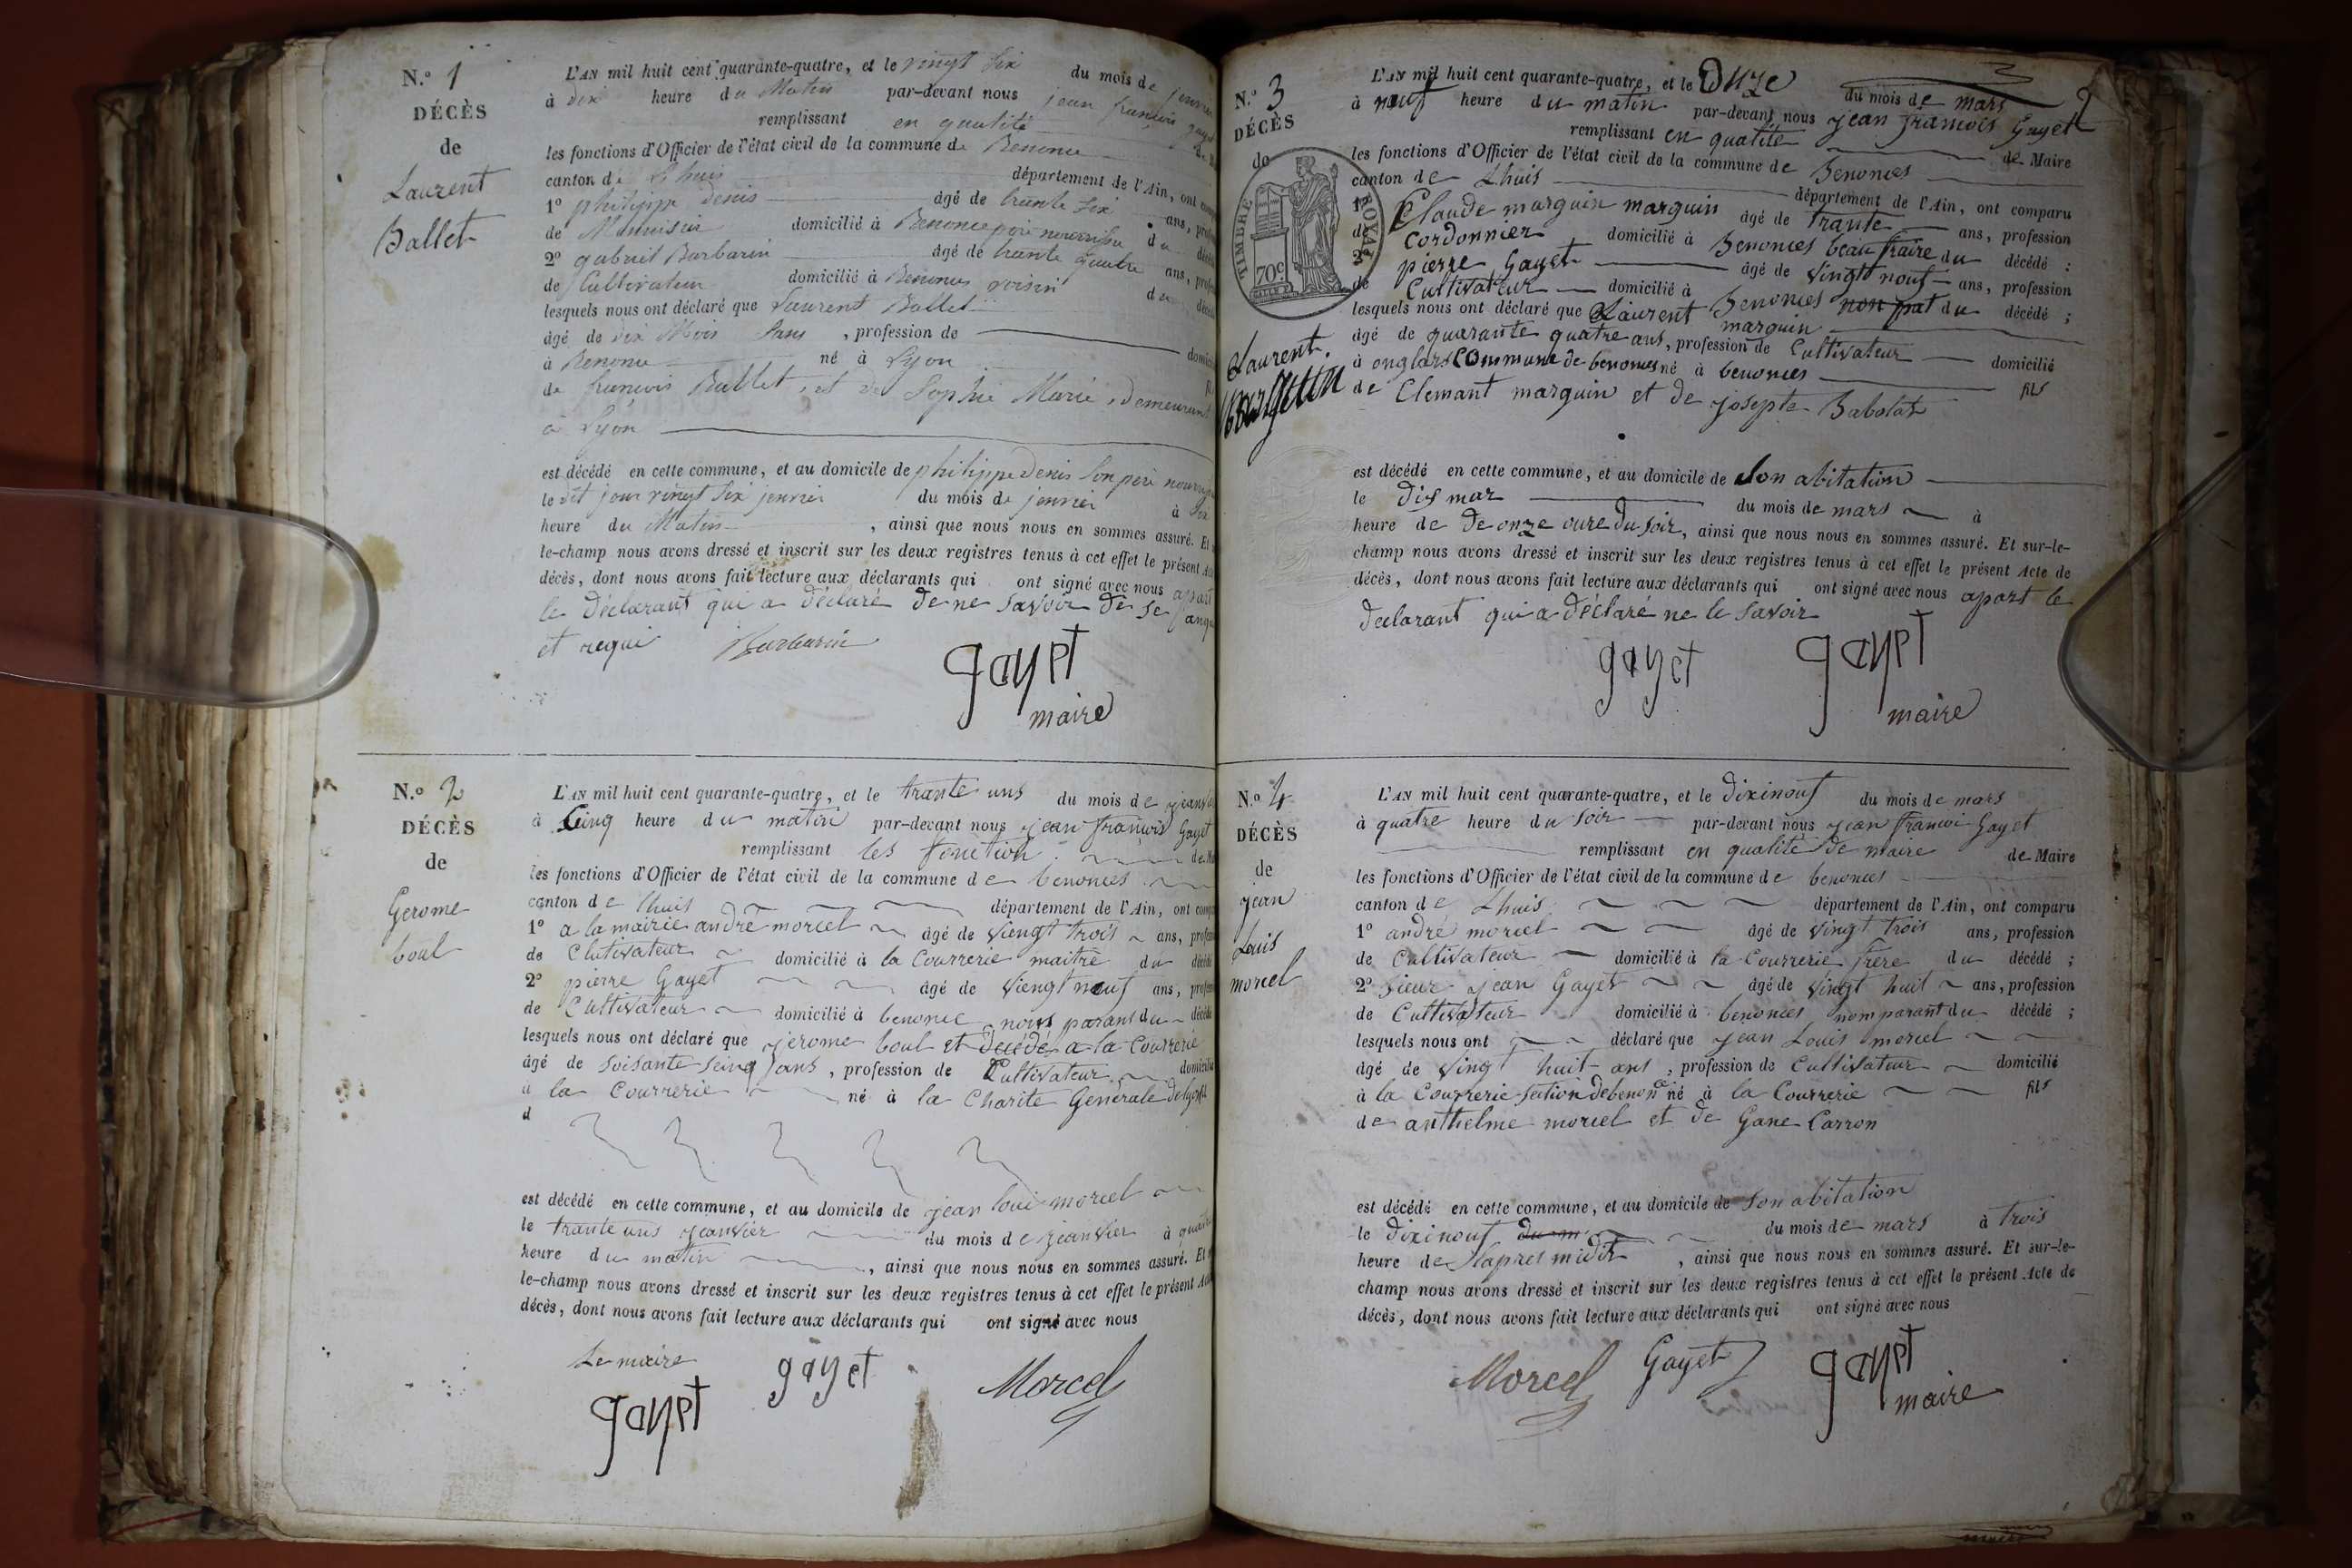 N.º 1
DÉCÈS
de
Laurent
Ballet
L'AN mil huit cent quarante-quatre, et le vingt six du mois de
à dix heure du Matin par-devant nous jean françois
remplissant en qualité
les fonctions d'Officier de l'état civil de la commune de Benonce
canton de Lhuis département de l'Ain, ont
1º philippe denis âgé de trante six ans,
de domicilié à Benonce père nourrisse du
2º gabriel Barbarin âgé de trante quatre ans,
de Cultivateur domicilié à Benonces voisin du
lesquels nous ont déclaré que Laurent Ballet
âgé de dix Mois sans , profession de
à Benonce né à Lyon
de francois Ballet, et de Sophie Marie, demeurant
a Lyon
est décédé en cette commune, et au domicile de philippe denis son père
le dit jour vingt six jenvier du mois de jenvier à six
heure du Matin , ainsi que nous nous en sommes assuré. Et
le-champ nous avons dressé et inscrit sur les deux registres tenus à cet effet le présent
décès, dont nous avons fait lecture aux déclarants qui ont signé avec nous apart
le déclarant qui a déclaré de ne savoir de se
et requi Barbarin
gayet
maire
N.º 2
DÉCÈS
de
Gerome
boul
L'AN mil huit cent quarante-quatre, et le trante uns du mois de
à Cinq heure du matin par-devant nous jean françois Gayet
remplissant les fonction
les fonctions d'Officier de l'état civil de la commune de benonces
canton de lhuis département de l'Ain, ont
1º a la mairie andré morcel âgé de viengt trois ans,
de Clutivateur domicilié à la Courrerie maitre du
2º pierre Gayet âgé de viengt neuf ans,
de Cultivateur domicilié à benonce nons parans du
lesquels nous ont déclaré que jerome boul et décédé a la Courrerie
âgé de soisante seinq ans , profession de Cultivateur
a la Courrerie né à la Charité Générale
d
est décédé en cette commune, et au domicile de jean loui morcel
le trante uns jeanvier du mois de jeanvier à
heure du matin , ainsi que nous nous en sommes assuré. Et
le-champ nous avons dressé et inscrit sur les deux registres tenus à cet effet le présent
décès, dont nous avons fait lecture aux déclarants qui ont signé avec nous
Le maire
gayet gayet Morcel
N.º 3
DÉCÈS
de
TIMBRE ROYAL
70c
Laurent
L'AN mil huit cent quarante-quatre, et le Onze du mois de mars
à neuf heure du matin par-devant nous jean francois Gayet
remplissant en qualité de Maire
les fonctions d'Officier de l'état civil de la commune de Benonces
canton de Lhuis département de l'Ain, ont comparu
1º Claude marguin marguin âgé de trante ans, profession
de Cordonnier domicilié à Benonces beau fraire du décédé :
2º pierre Gayet âgé de vingt nouf ans, profession
de Cultivateur domicilié à Benonces non pat du décédé ;
lesquels nous ont déclaré que Laurent marguin
âgé de quarante quatre ans, profession de Cultivateur domicilié
à englars Commune de benonces né à benonces fils
de Clemant marguin et de josepte Babolat
est décédé en cette commune, et au domicile de Son abitation
le dis mar du mois de mars à
heure de de onze oure du soir, ainsi que nous nous en sommes assuré. Et sur-le-
champ nous avons dressé et inscrit sur les deux registres tenus à cet effet le présent Acte de
décès, dont nous avons fait lecture aux déclarants qui ont signé avec nous apart le
declarant qui a déclaré ne le savoir
gayet gayet
maire
N.º 4
DÉCÈS
de
jean
Louis
morcel
L'AN mil huit cent quarante-quatre, et le dixinouf du mois de mars
à quatre heure du soir par-devant nous jean francoi Gayet
remplissant en qualité de maire de Maire
les fonctions d'Officier de l'état civil de la commune de benonces
canton de Lhuis département de l'Ain, ont comparu
1º andré morcel âgé de vingt trois ans, profession
de Cultivateur domicilié à la Courrerie frere du décédé ;
2º sieur jean Gayet âgé de vingt huit ans, profession
de Cultivateur domicilié à benonces nomparant du décédé ;
lesquels nous ont déclaré que jean Louis morcel
âgé de vingt huit ans , profession de Cultivateur domicilié
à la Courrerie section de benonce né à la Courrerie fils
de anthelme morcel et de Gane Carron
est décédé en cette commune, et au domicile de son abitation
le dixinouf du m du mois de mars à trois
heure de lapres midit , ainsi que nous nous en sommes assuré. Et sur-le-
champ nous avons dressé et inscrit sur les deux registres tenus à cet effet le présent Acte de
décès, dont nous avons fait lecture aux déclarants qui ont signé avec nous
Morcel Gayet gayet
maire